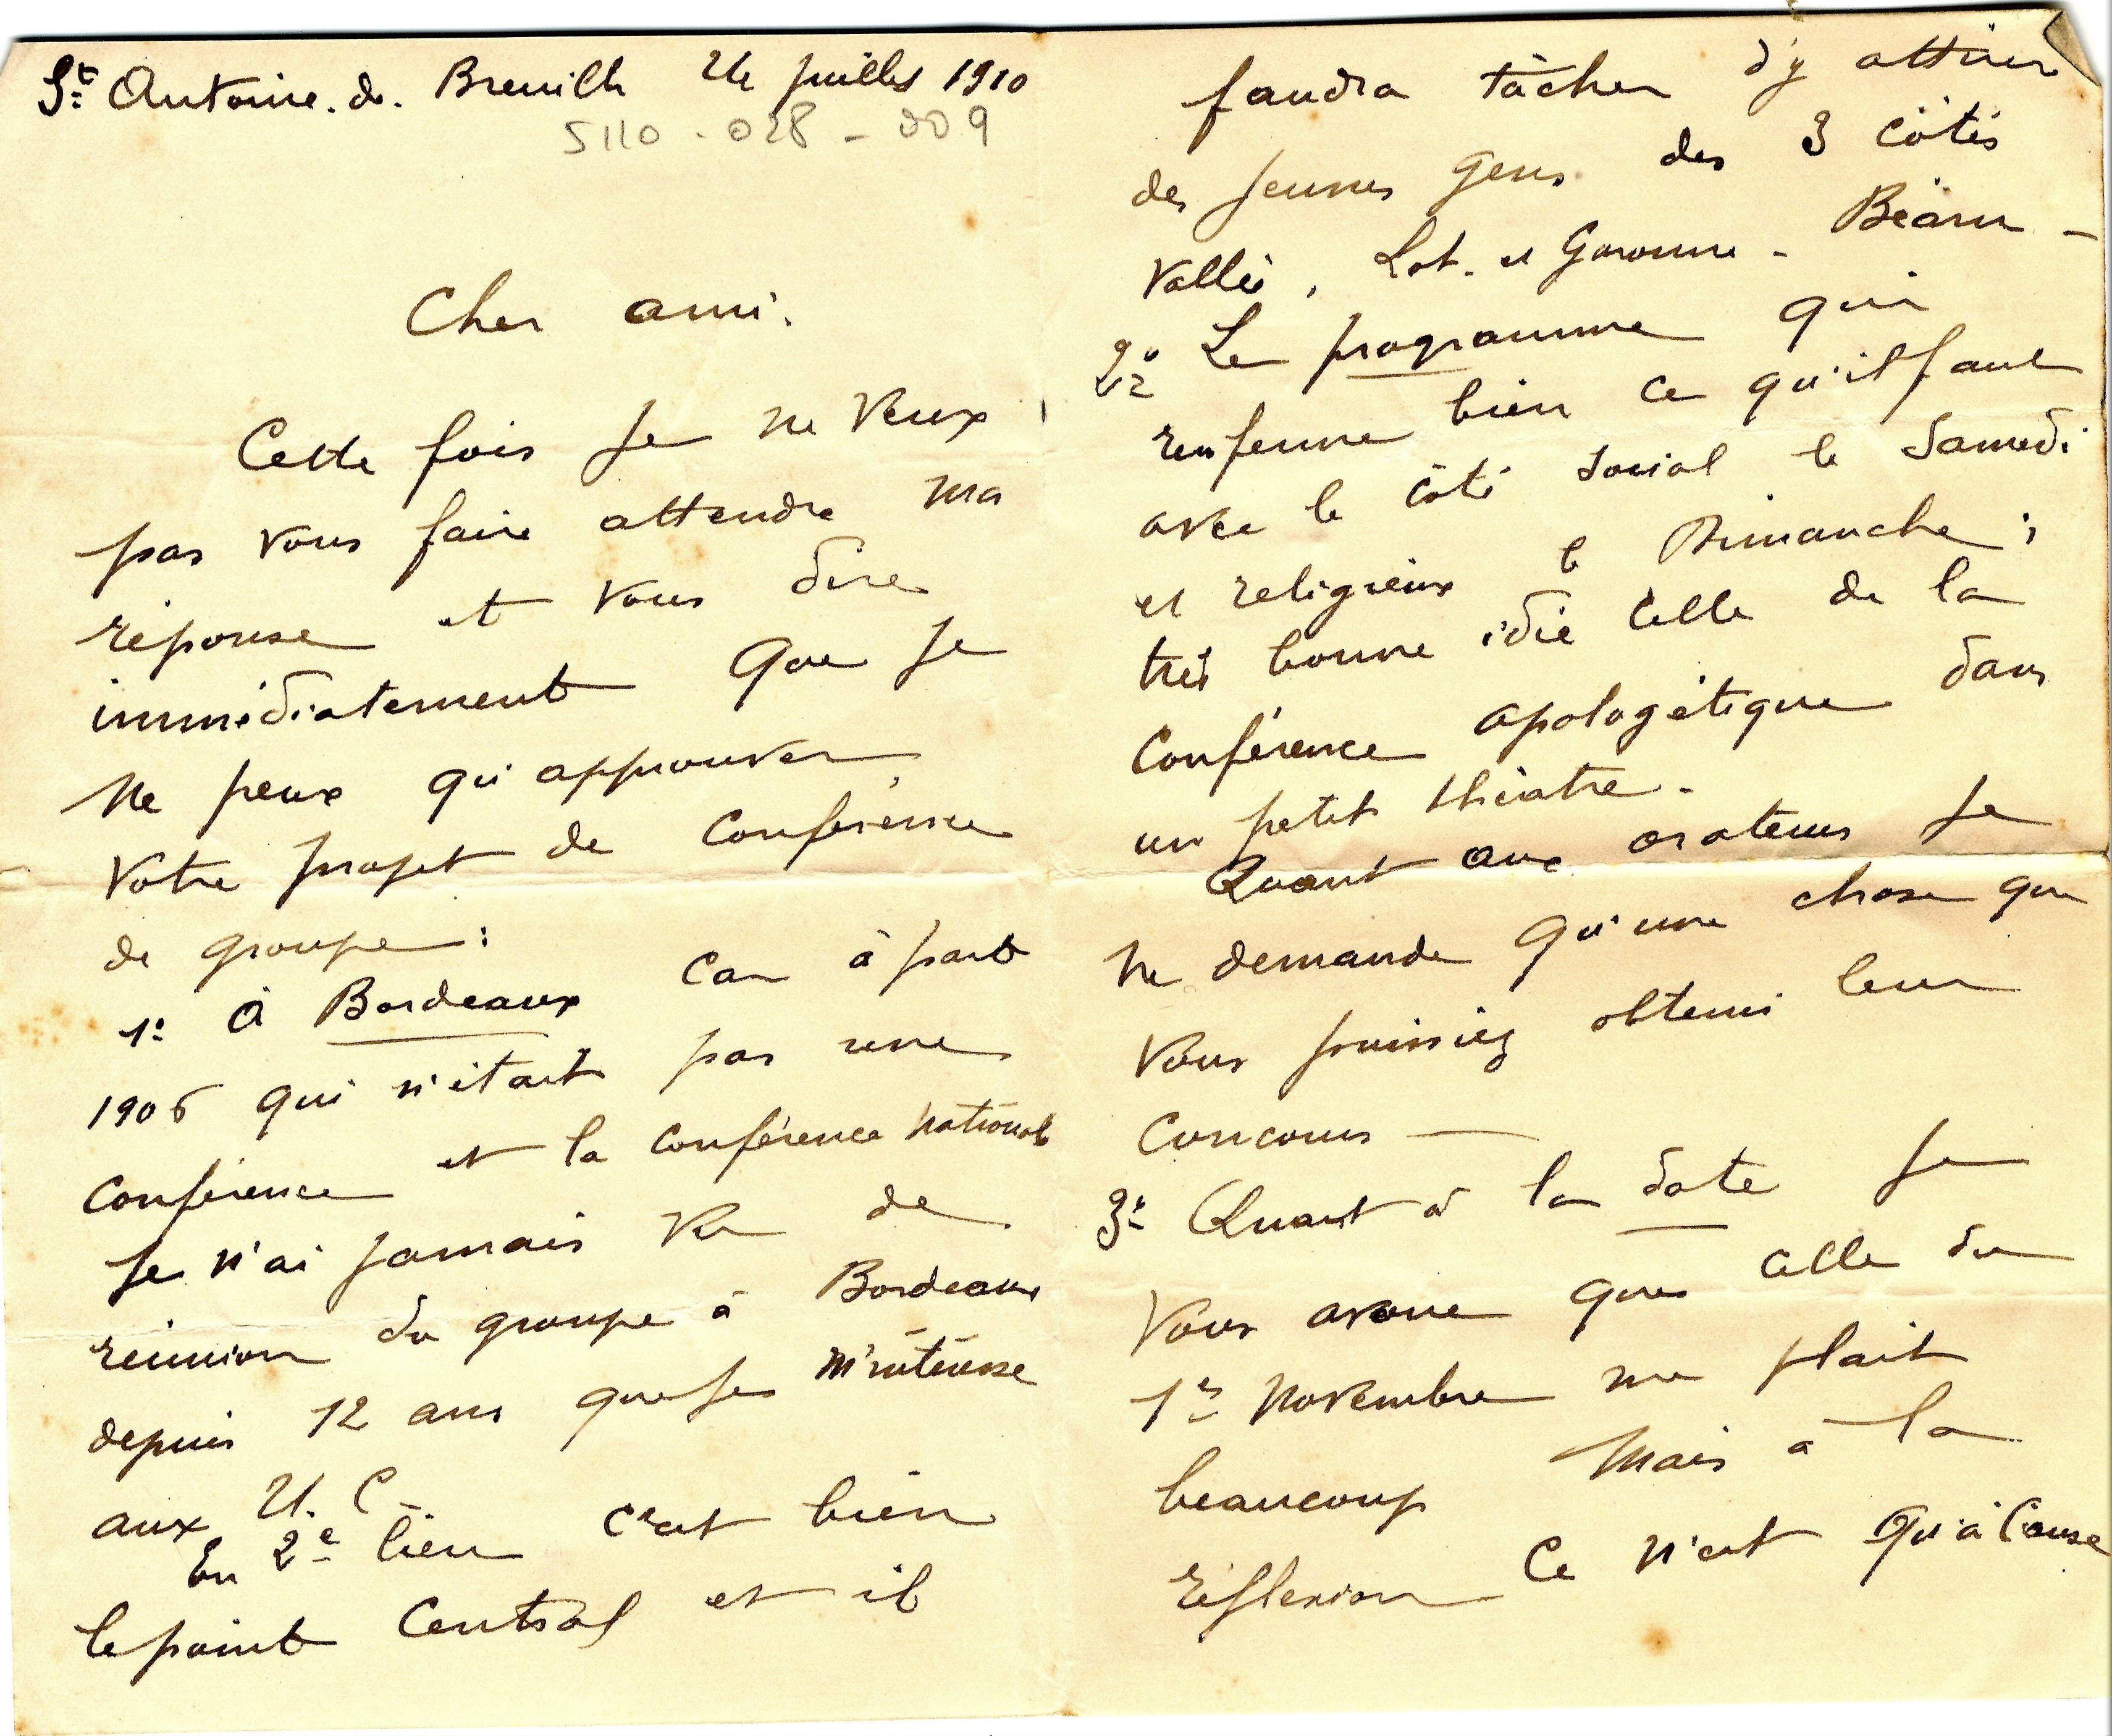 St Antoine. de. Breuilh 24 juillet 1910
5110-028-009
Cher ami.
Cette fois je ne veux
pas vous faire attendre ma
réponse et vous dire
immédiatement que je
ne peux qu'approuver
votre projet de Conférence
de groupe :
1º à Bordeaux car à part
1906 qui n'était pas une
Conférence et la Conférence Nationale
je n'ai jamais vu de
réunion du groupe à Bordeaux
depuis 12 ans que je m'intéresse
aux U. C.
En 2e lieu c'est bien
le point Central et il
faudra tâcher d'y attirer
des jeunes gens des 3 Côtés
Vallée, Lot. et Garonne - Béarn -
2º Le programme qui
renferme bien ce qu'il faut
avec le côté social le Samedi
et religieux le Dimanche ;
très bonne idée celle de la
Conférence apologétique dans
un petit théatre -
Quant aux orateurs je
ne demande qu'une chose que
vous puissiez obtenir leur
Concours —
3º Quant à la date je
vous avoue que celle du
1er Novembre me plait
beaucoup Mais à la
réflexion Ce n'est qu'à Cause